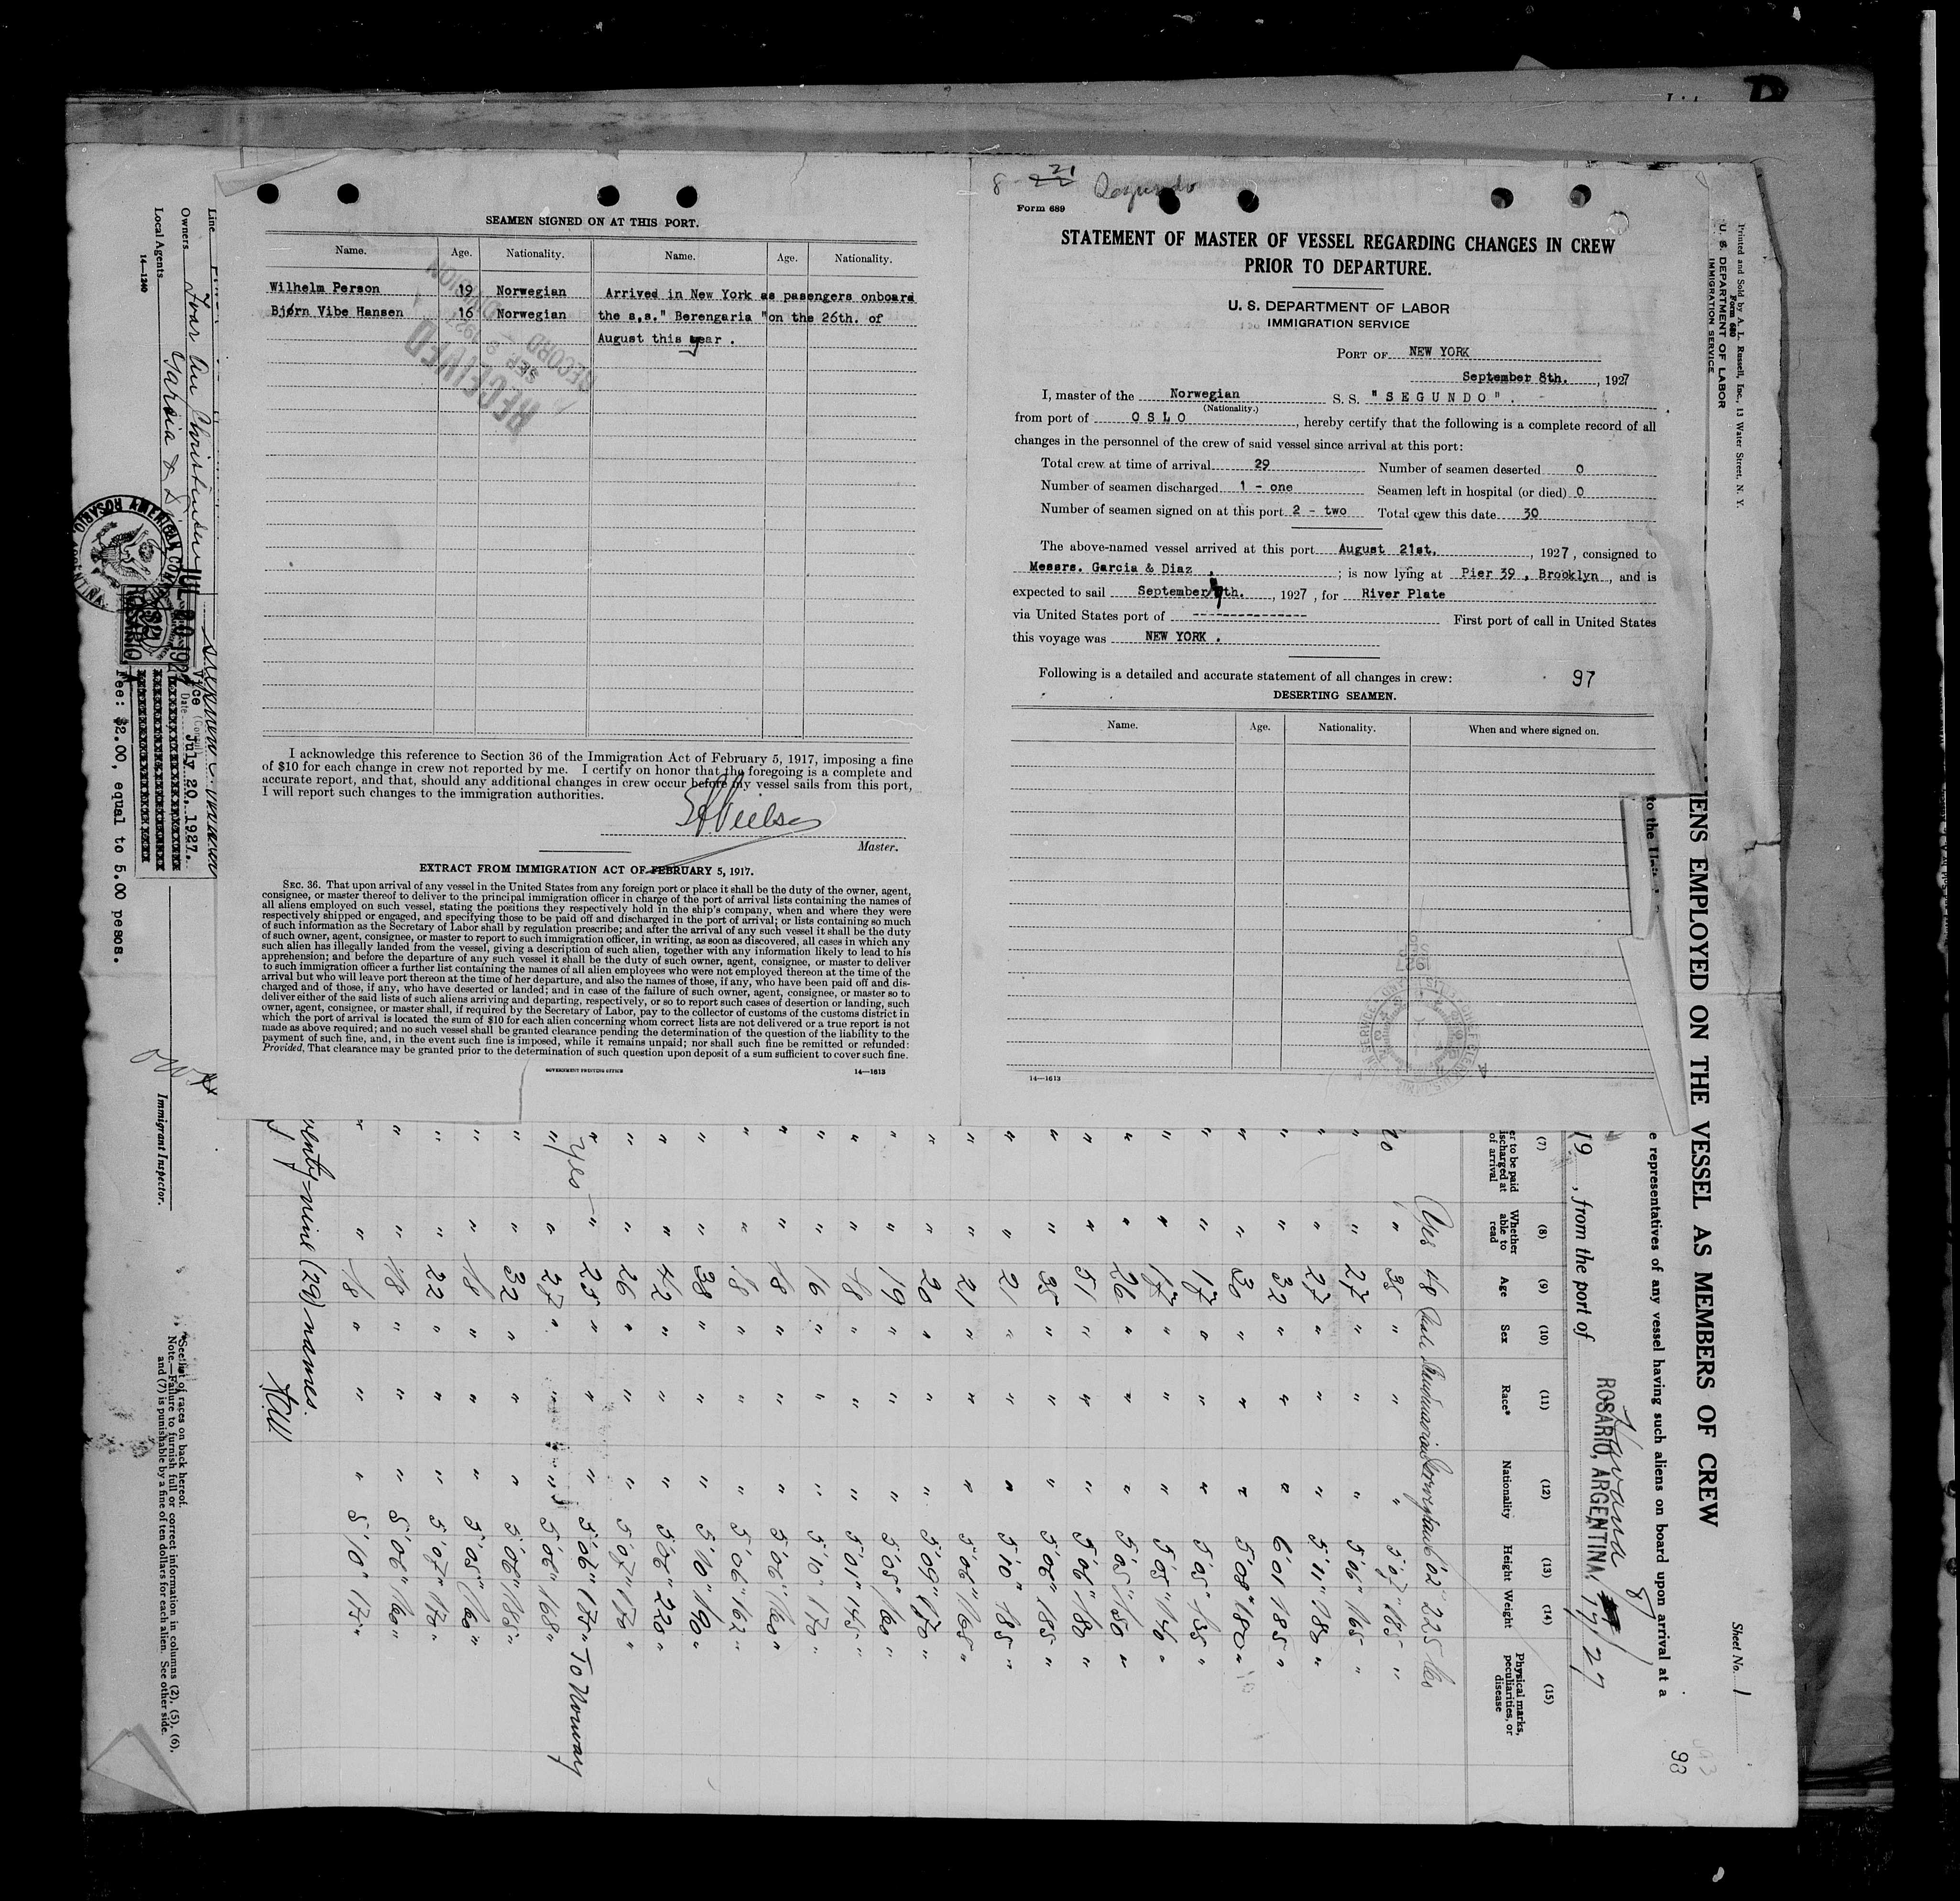 SEAMEN SIGNED ON AT THIS PORT.
Name. Age. Nationality. Name. Age. Nationality.
Wilhelm Person 19 Norwegian Arrived in New York as pasengers onboard
Bjørn Vibe Hansen 16 Norwegian the s.s." Berengaria "on the 26th. of
August this year .
RECEIVED
SEP 9 192
RECORD DIVISION
I acknowledge this reference to Section 36 of the Immigration Act of February 5, 1917, imposing a fine
of $10 for each change in crew not reported by me. I certify on honor that the foregoing is a complete and
accurate report, and that, should any additional changes in crew occur before my vessel sails from this port,
I will report such changes to the immigration authorities.
Master.
EXTRACT FROM IMMIGRATION ACT OF FEBRUARY 5, 1917.
SEC. 36. That upon arrival of any vessel in the United States from any foreign port or place it shall be the duty of the owner, agent,
consignee, or master thereof to deliver to the principal immigration officer in charge of the port of arrival lists containing the names of
all aliens employed on such vessel, stating the positions they respectively hold in the ship's company, when and where they were
respectively shipped or engaged, and specifying those to be paid off and discharged in the port of arrival; or lists containing so much
of such information as the Secretary of Labor shall by regulation prescribe; and after the arrival of any such vessel it shall be the duty
of such owner, agent, consignee, or master to report to such immigration officer, in writing, as soon as discovered, all cases in which any
such alien has illegally landed from the vessel, giving a description of such alien, together with any information likely to lead to his
apprehension; and before the departure of any such vessel it shall be the duty of such owner, agent, consignee, or master to deliver
to such immigration officer a further list containing the names of all alien employees who were not employed thereon at the time of the
arrival but who will leave port thereon at the time of her departure, and also the names of those, if any, who have been paid off and dis-
charged and of those, if any, who have deserted or landed; and in case of the failure of such owner, agent, consignee, or master so to
deliver either of the said lists of such aliens arriving and departing, respectively, or so to report such cases of desertion or landing, such
owner, agent, consignee, or master, shall, if required by the Secretary of Labor, pay to the collector of customs of the customs district in
which the port of arrival is located the sum of $10 for each alien concerning whom correct lists are not delivered or a true report is not
made as above required; and no such vessel shall be granted clearance pending the determination of the question of the liability to the
payment of such fine, and, in the event such fine is imposed, while it remains unpaid; nor shall such fine be remitted or refunded:
Provided, That clearance may be granted prior to the determination of such question upon deposit of a sum sufficient to cover such fine.
GOVERNMENT PRINTING OFFICE 14—1613
8 21 Segundo
Form 689
STATEMENT OF MASTER OF VESSEL REGARDING CHANGES IN CREW
PRIOR TO DEPARTURE.
U. S. DEPARTMENT OF LABOR
IMMIGRATION SERVICE
PORT OF NEW YORK
September 8th. , 1927
I, master of the Norwegian S. S. "SEGUNDO".
(Nationality.)
from port of OSLO , hereby certify that the following is a complete record of all
changes in the personnel of the crew of said vessel since arrival at this port:
Total crew at time of arrival 29 Number of seamen deserted 0
Number of seamen discharged 1 - one Seamen left in hospital (or died) 0
Number of seamen signed on at this port 2 - two Total crew this date 30
The above-named vessel arrived at this port August 21st. , 1927, consigned to
Messrs. Garcia & Diaz . ; is now lying at Pier 39 , Brooklyn , and is
expected to sail September th. , 1927 , for River Plate
via United States port of -------------- First port of call in United States
this voyage was NEW YORK .
Following is a detailed and accurate statement of all changes in crew: 97
DESERTING SEAMEN.
Name. Age. Nationality. When and where signed on.
14—1613
Printed and Sold by A. L. Russell, Inc., 13 Water Street, N. Y.
Form 680
U. S. DEPARTMENT OF LABOR
IMMIGRATION SERVICE
Sheet No. 1
98
ENS EMPLOYED ON THE VESSEL AS MEMBERS OF CREW
e representatives of any vessel having such aliens on board upon arrival at a
19 , from the port of Havana 8/17/27
ROSARIO, ARGENTINA,
(7) (8) (9) (10) (11) (12) (13) (14) (15)
er to be paid
ischarged at
of arrival
Whether
able to
read
Age Sex Race* Nationality Height Weight
Physical marks,
peculiarities, or
disease
Yes 48 Male Scandinavian Norwegian 6'02" 225 lbs
" " 35 " " " 5'07" 185 "
" " 27 " " " 5'06" 165 "
" " 27 " " " 5'11" 180 "
" " 32 " " " 6'01" 185 "
" " 30 " " " 5'08" 180 "
" " 17 " " " 5'05" 135 "
" " 17 " " " 5'05" 140 "
" " 26 " " " 5'05" 150 "
" " 51 " " " 5'06" 180 "
" " 35 " " " 5'06" 185 "
" " 21 " " " 5'10" 185 "
" " 21 " " " 5'06" 165 "
" " 20 " " " 5'09" 170 "
" " 19 " " " 5'05" 160 "
" " 18 " " " 5'01" 145 "
" " 16 " " " 5'10" 170 "
" " 18 " " " 5'06" 160 "
" " 18 " " " 5'06" 162 "
" " 38 " " " 5'10" 190 "
" " 42 " " " 5'06" 220 "
" " 26 " " " 5'07" 170 "
Yes " 25 " " " 5'06" 175 " To Norway
" " 27 " " " 5'06" 168 "
" " 32 " " " 5'06" 185 "
" " 18 " " " 5'05" 160 "
" " 22 " " " 5'07" 170 "
" " 18 " " " 5'06" 160 "
" " 18 " " " 5'10" 175 "
enty-nine (29) names.
Line
Owners Ivar An Christensen
Local Agents Garcia & D
14—1240
AMERICAN CON ROSARIO ARGENTINA
JUL 20 1927
Vice
Date July 20, 1927.
Fee: $2.00, equal to 5.00 pesos.
Immigrant Inspector.
*See list of races on back hereof.
Note.—Failure to furnish full or correct information in columns (2), (5), (6),
and (7) is punishable by a fine of ten dollars for each alien. See other side.